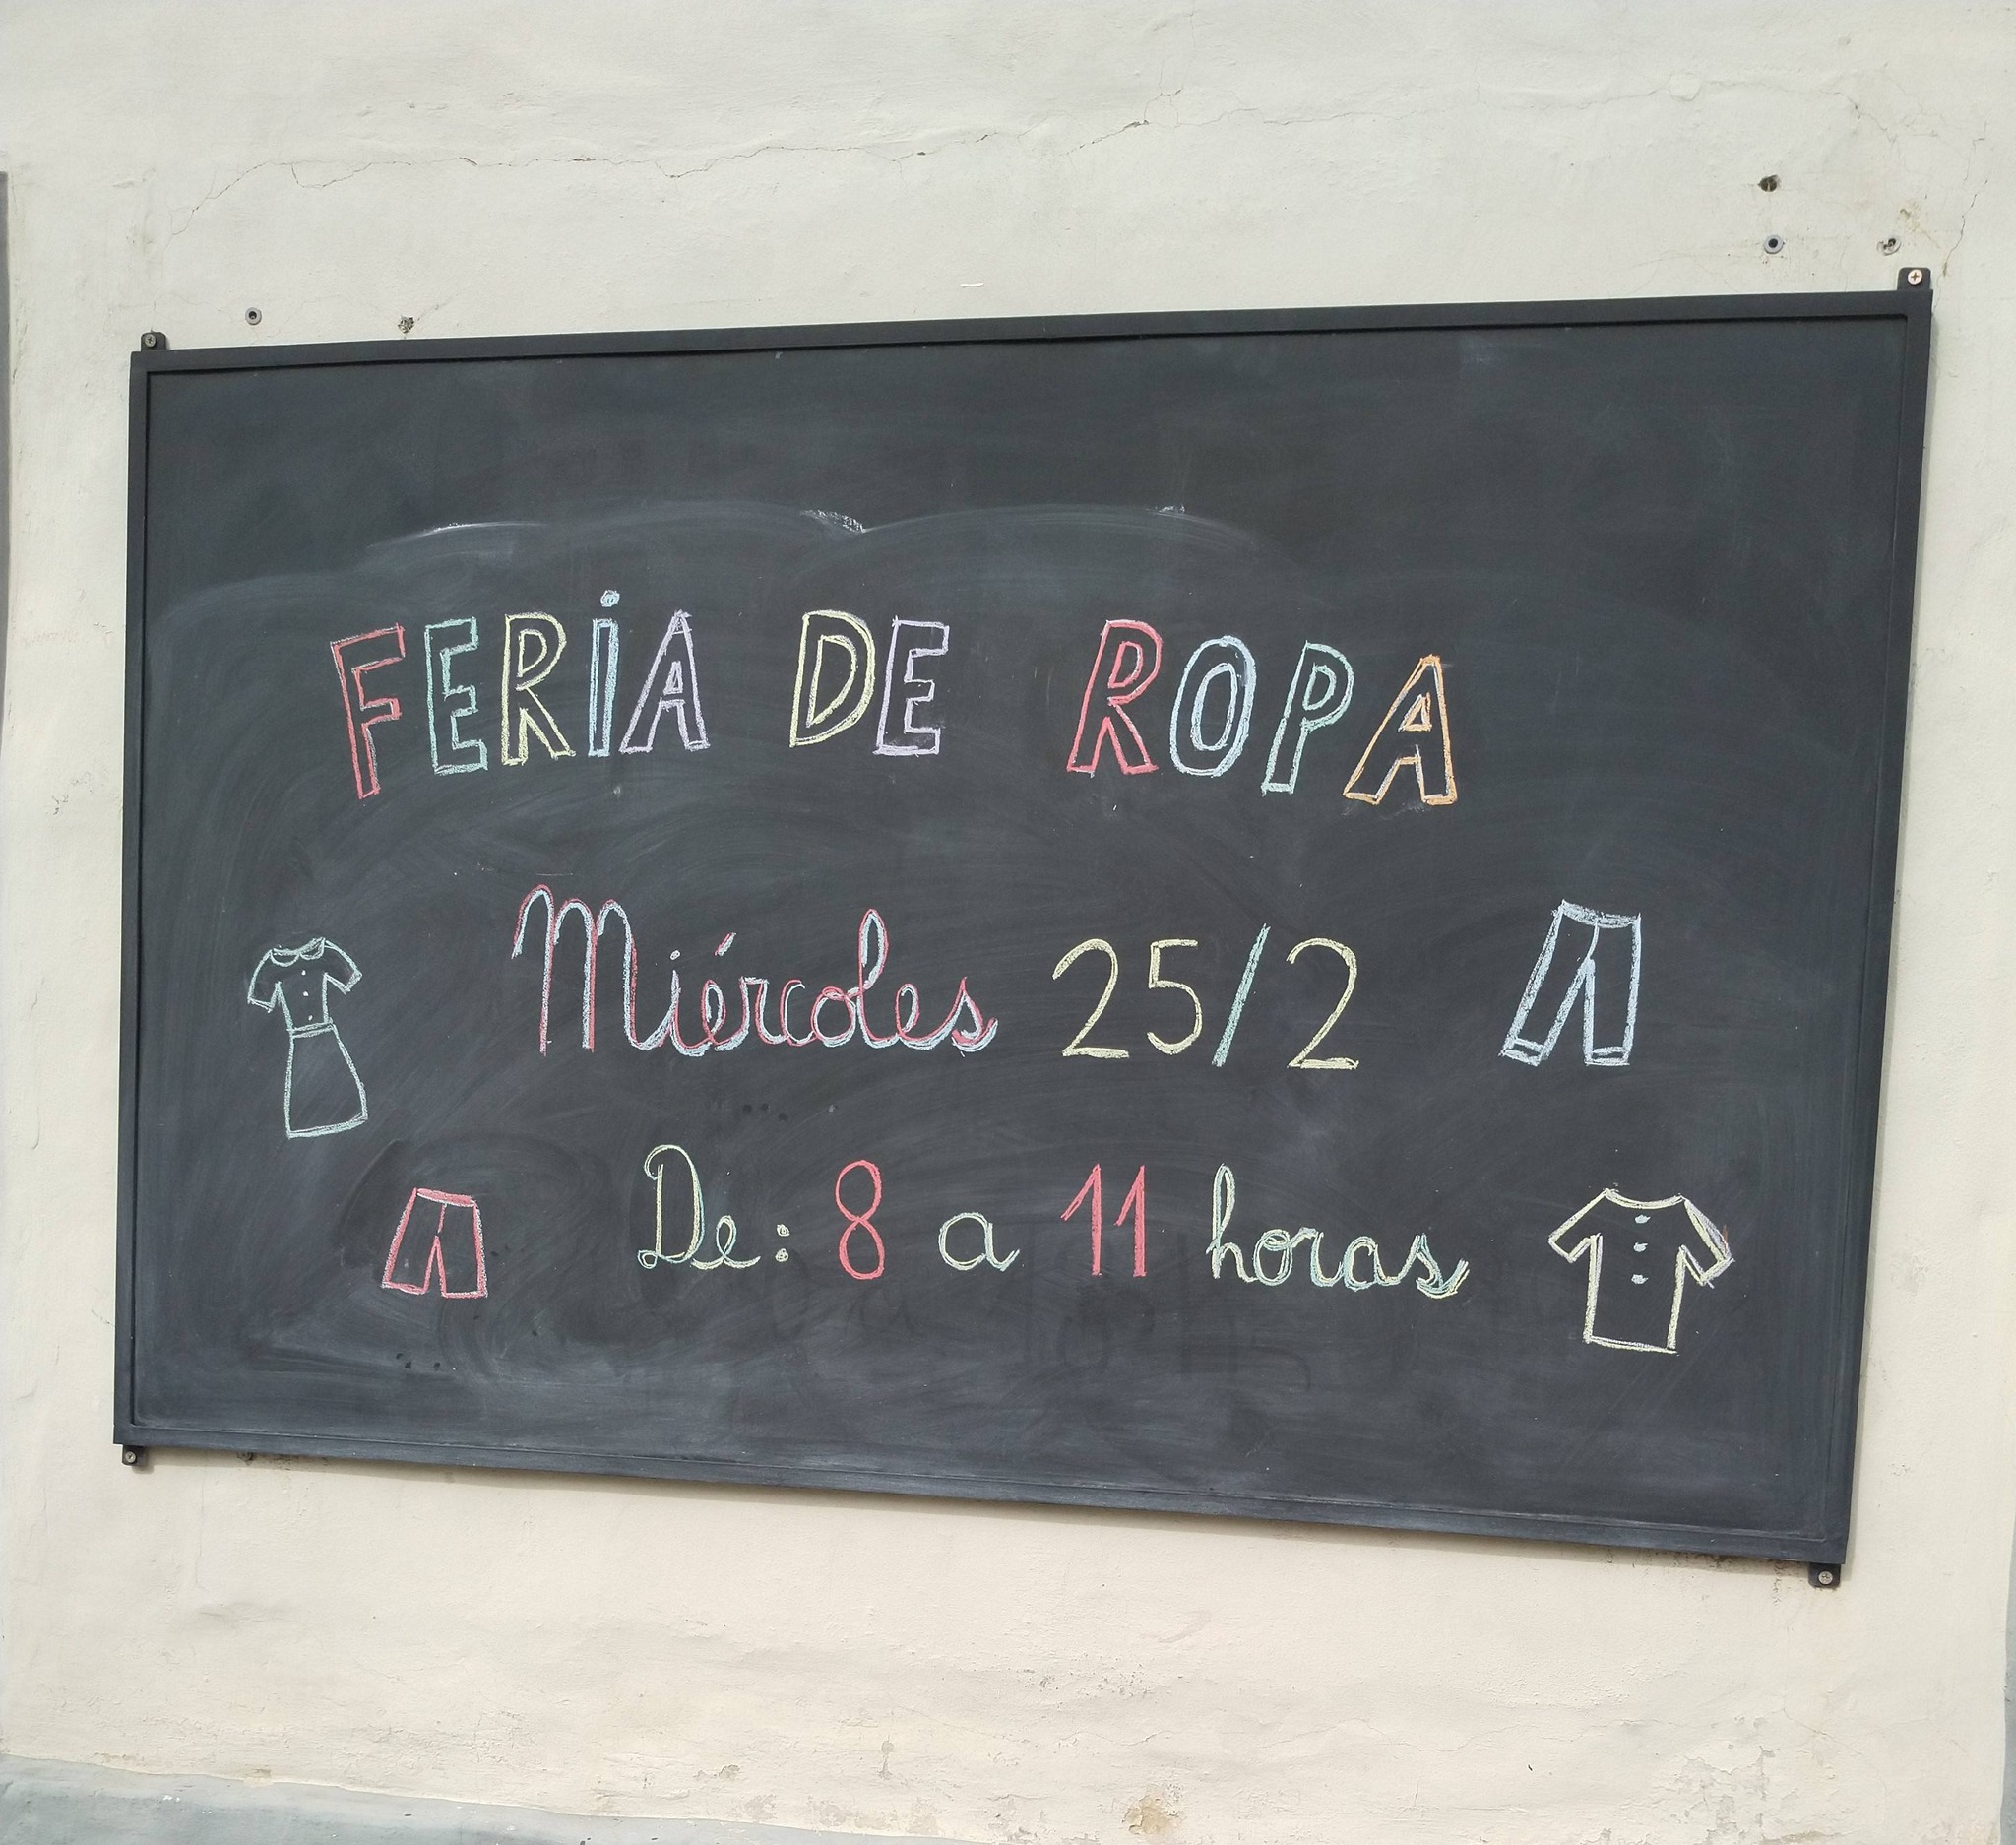 FERiA DE ROPA
Miércoles 25/2
De: 8 a 11 horas